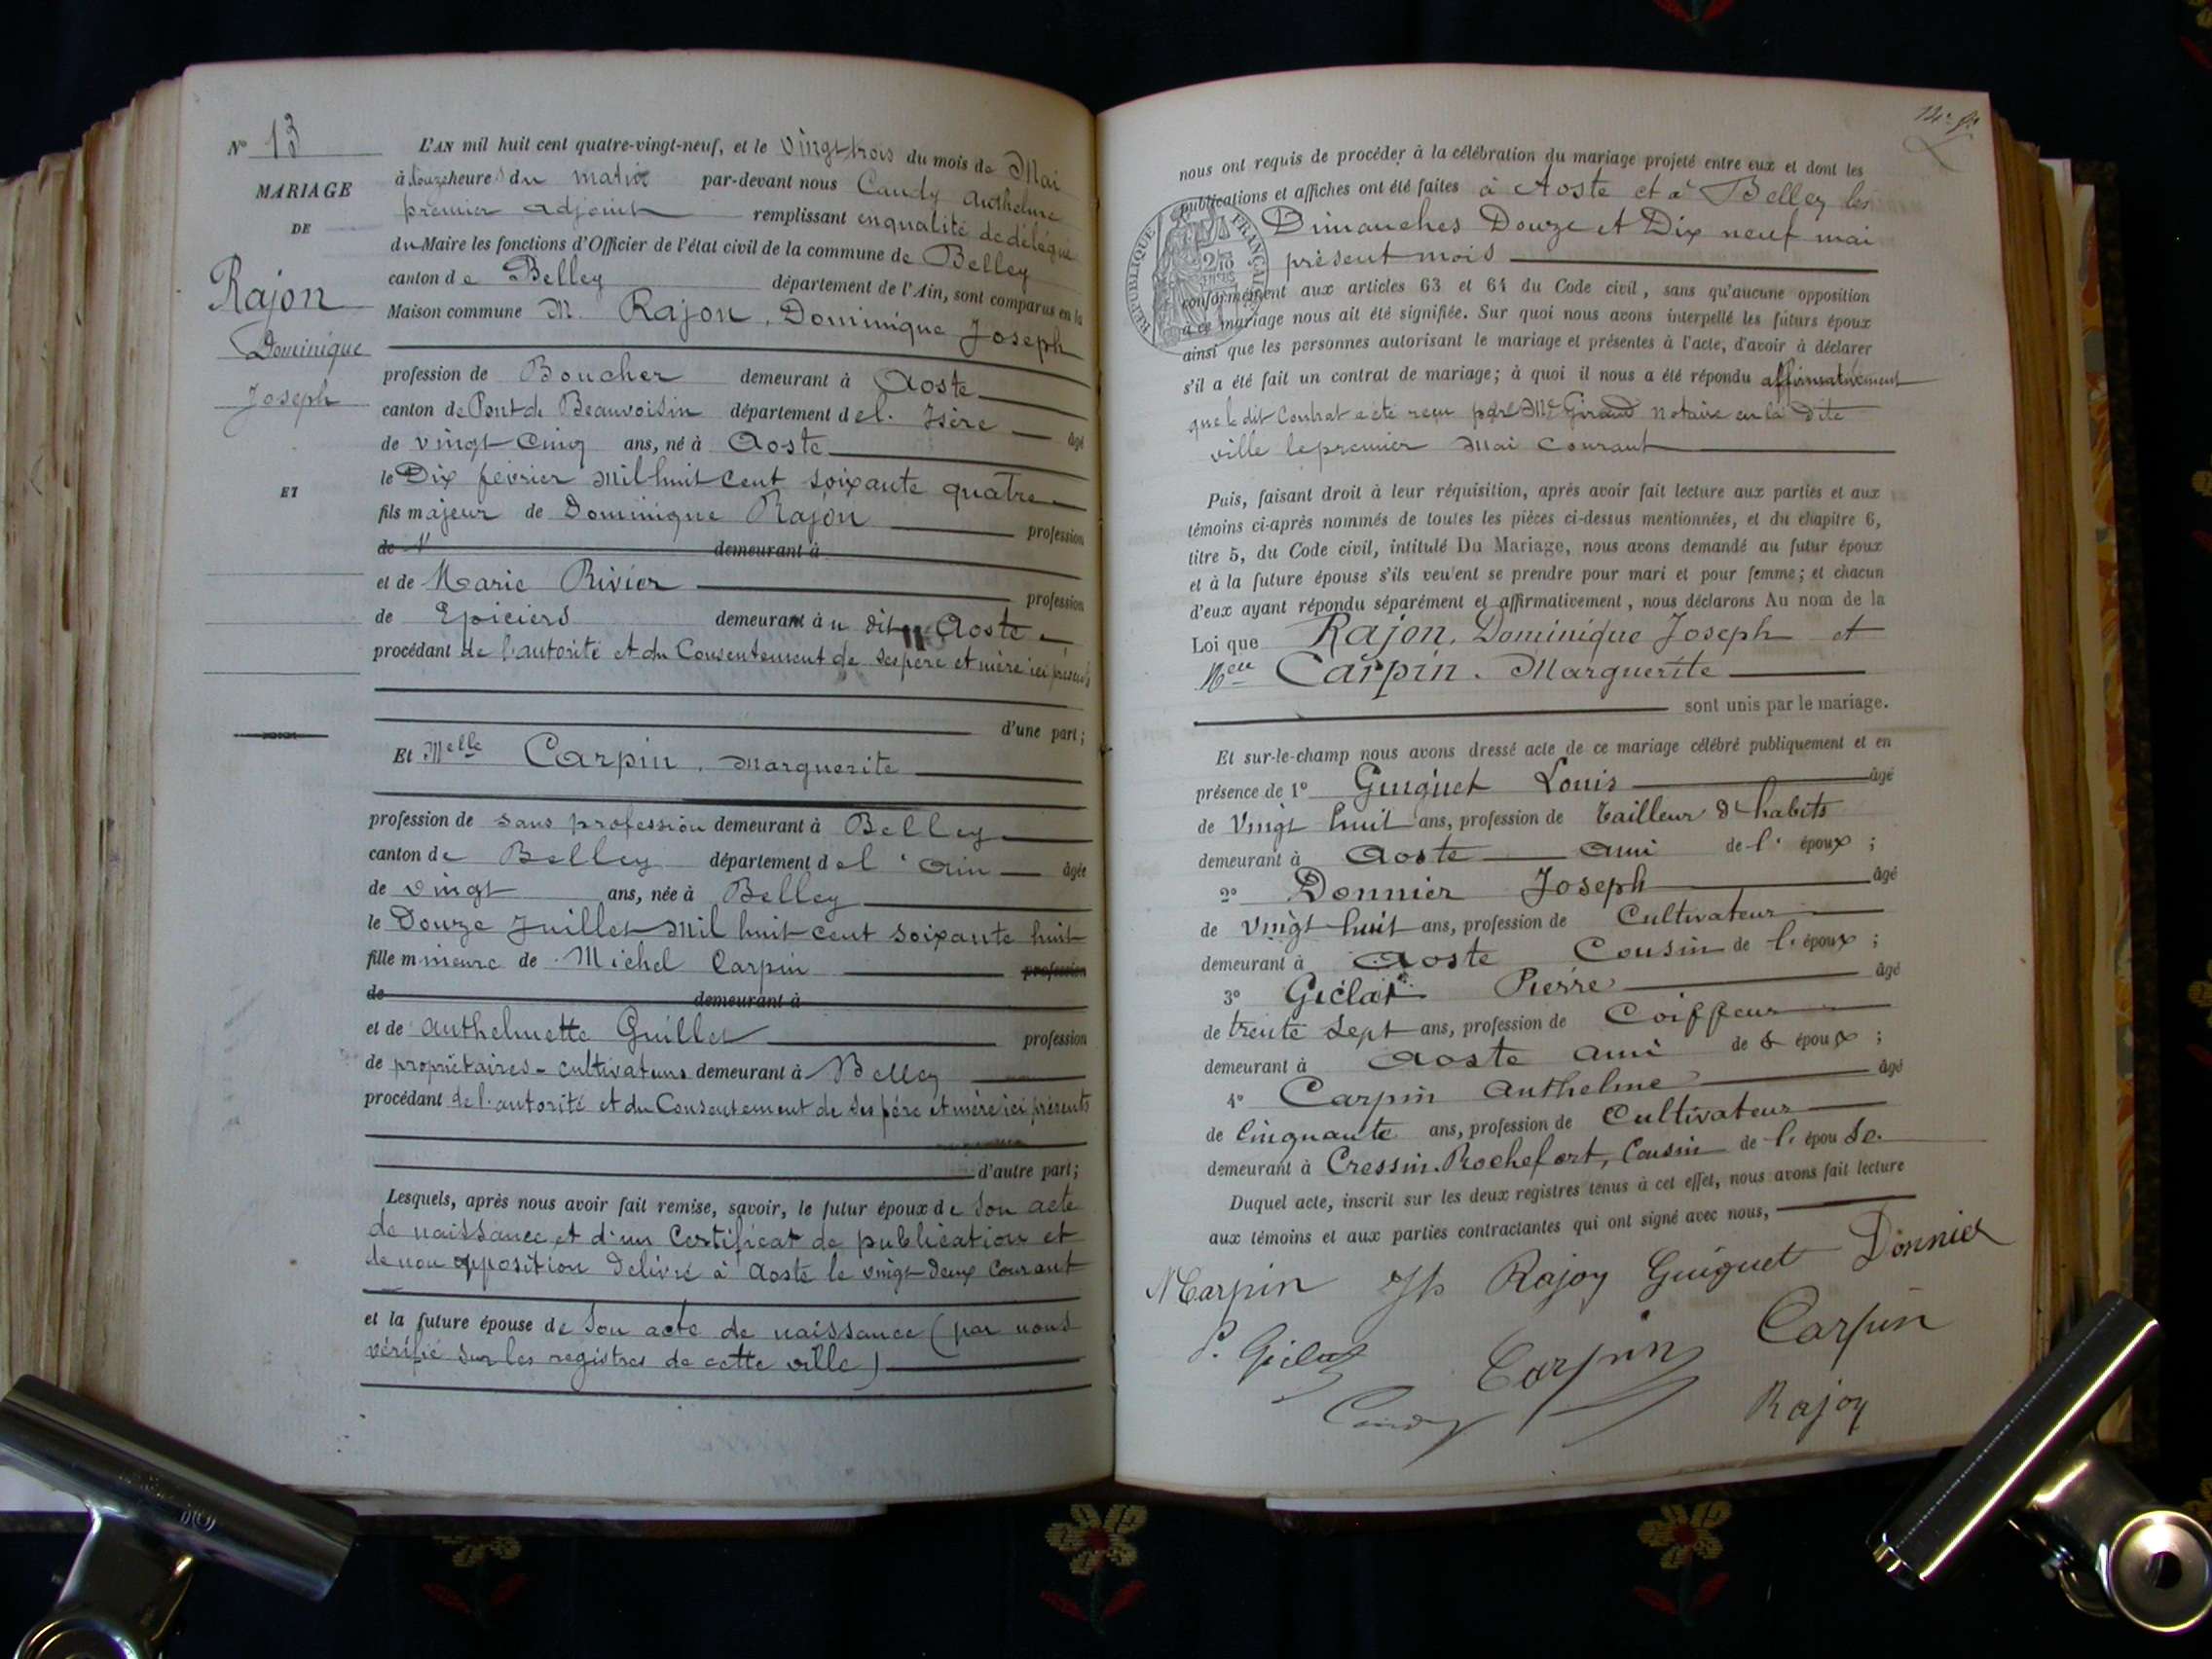 N° 13
MARIAGE
DE
Rajon
Dominique
Joseph
ET
L'AN mil huit cent quatre-vingt-neuf, et le vingt trois du mois de Mai
à heures du matin par-devant nous Caudy Anthelme
premier adjoint remplissant en qualité de délégué
du Maire les fonctions d'Officier de l'état civil de la commune de Belley
canton de Belley département de l'Ain, sont comparus en la
Maison commune M. Rajon, Dominique Joseph
profession de Boucher demeurant à Aoste
canton de Pont de Beauvoisin département de l'Isère âgé
de vingt cinq ans, né à Aoste
le Dix février mil huit cent soixante quatre
fils majeur de Dominique Rajon profession
de demeurant à
et de Marie Rivier profession
de Epiciers demeurant au dit Aoste
procédant de l'autorité et du Consentement de ses père et mère ici présents
d'une part;
Et Melle Carpin, Marguerite
profession de sans profession demeurant à Belley
canton de Belley département de l'Ain âgée
de vingt ans, née à Belley
le Douze Juillet mil huit cent soixante huit
fille mineure de Michel Carpin profession
de demeurant à
et de Anthelmette Guillet profession
de propriétaires-cultivateurs demeurant à Belley
procédant de l'autorité et du Consentement de ses père et mère ici présents
d'autre part;
Lesquels, après nous avoir fait remise, savoir, le futur époux de son acte
de naissance et d'un Certificat de publication et
de non opposition délivré à Aoste le vingt deux Courant
et la future épouse de son acte de naissance (par nous
vérifié sur les registres de cette ville)
nous ont requis de procéder à la célébration du mariage projeté entre eux et dont les
publications et affiches ont été faites à Aoste et à Belley les
Dimanches Douze et Dix neuf mai
présent mois
RÉPUBLIQUE FRANÇAISE
conformément aux articles 63 et 64 du Code civil, sans qu'aucune opposition
à ce mariage nous ait été signifiée. Sur quoi nous avons interpellé les futurs époux
ainsi que les personnes autorisant le mariage et présentes à l'acte, d'avoir à déclarer
s'il a été fait un contrat de mariage; à quoi il nous a été répondu affirmativement
que le dit Contrat a été reçu par Me Giraud notaire en la dite
ville le premier Mai Courant
Puis, faisant droit à leur réquisition, après avoir fait lecture aux parties et aux
témoins ci-après nommés de toutes les pièces ci-dessus mentionnées, et du chapitre 6,
titre 5, du Code civil, intitulé Du Mariage, nous avons demandé au futur époux
et à la future épouse s'ils veulent se prendre pour mari et pour femme; et chacun
d'eux ayant répondu séparément et affirmativement, nous déclarons Au nom de la
Loi que Rajon, Dominique Joseph et
Melle Carpin. Marguerite
sont unis par le mariage.
Et sur-le-champ nous avons dressé acte de ce mariage célébré publiquement et en
présence de 1° Guiguet Louis âgé
de Vingt huit ans, profession de Tailleur d'habits
demeurant à Aoste ami de l'époux;
2° Donnier Joseph âgé
de Vingt huit ans, profession de Cultivateur
demeurant à Aoste Cousin de l'époux;
3° Giclat Pierre âgé
de trente sept ans, profession de Coiffeur
demeurant à Aoste ami de l'époux;
4° Carpin Anthelme âgé
de Cinquante ans, profession de Cultivateur
demeurant à Cressin-Rochefort, Cousin de l'épouse.
Duquel acte, inscrit sur les deux registres tenus à cet effet, nous avons fait lecture
aux témoins et aux parties contractantes qui ont signé avec nous,
M Carpin Jh Rajon Guiguet Donnier
P. Giclat Carpin Carpin
Caudy Rajon